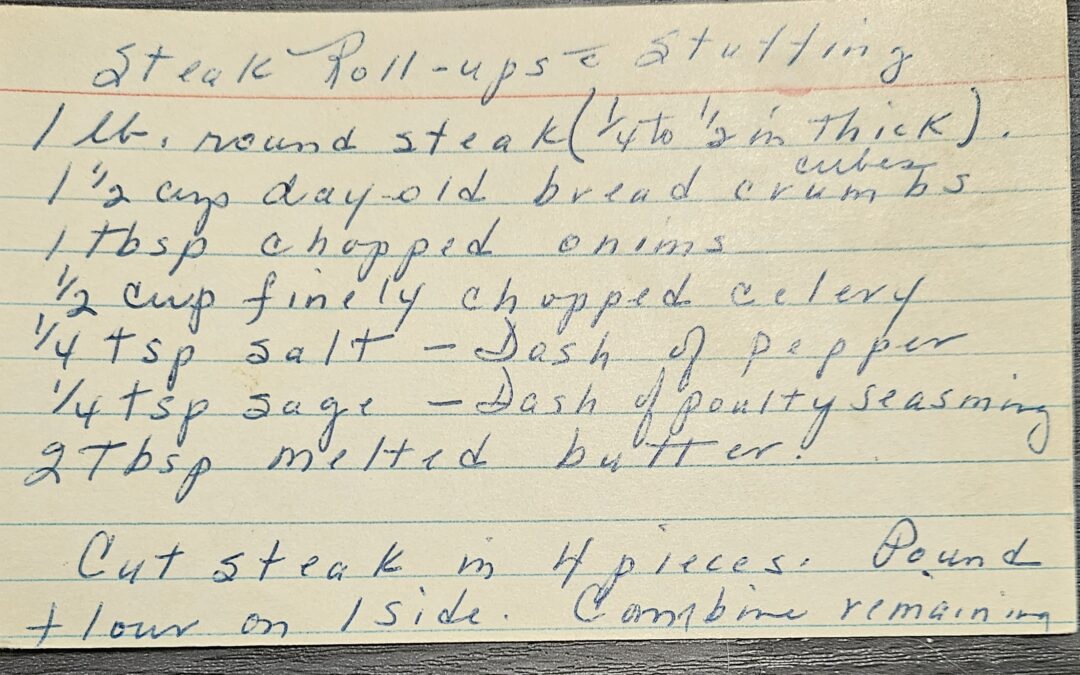 Steak Roll-ups c̄ Stuffing
1 lb. round steak (1/4 to 1/2 in thick).
cubes
1 1/2 cup day-old bread crumbs
1 tbsp chopped onions
1/2 cup finely chopped celery
1/4 tsp salt - Dash of pepper
1/4 tsp sage - Dash of poulty seasoning
2 Tbsp melted butter.
Cut steak in 4 pieces. Pound
flour on 1 side. Combine remaining